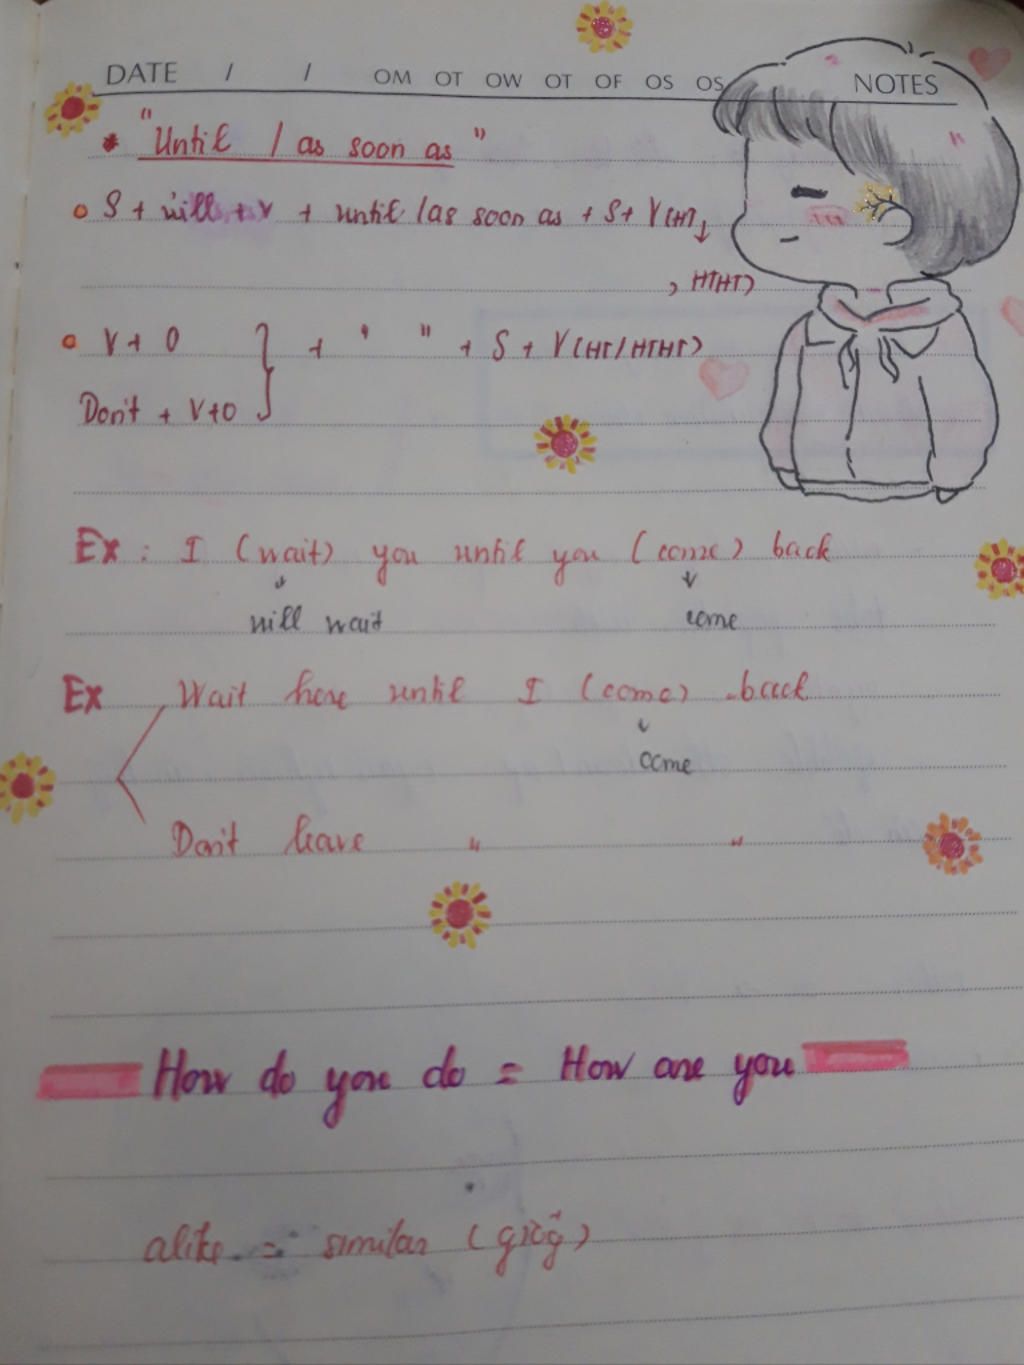 DATE / / OM OT OW OT OF OS OS NOTES
* "Until / as soon as"
S + will + V + until / as soon as + S + V (HT,
, HTHT)
V + O } + ' " + S + V (HT/HTHT)
Don't + V+O
Ex: I (wait) you until you (come) back
will wait come
Ex Wait here until I (come) back
come
Don't leave " "
How do you do = How are you
alike = similar (giốg)